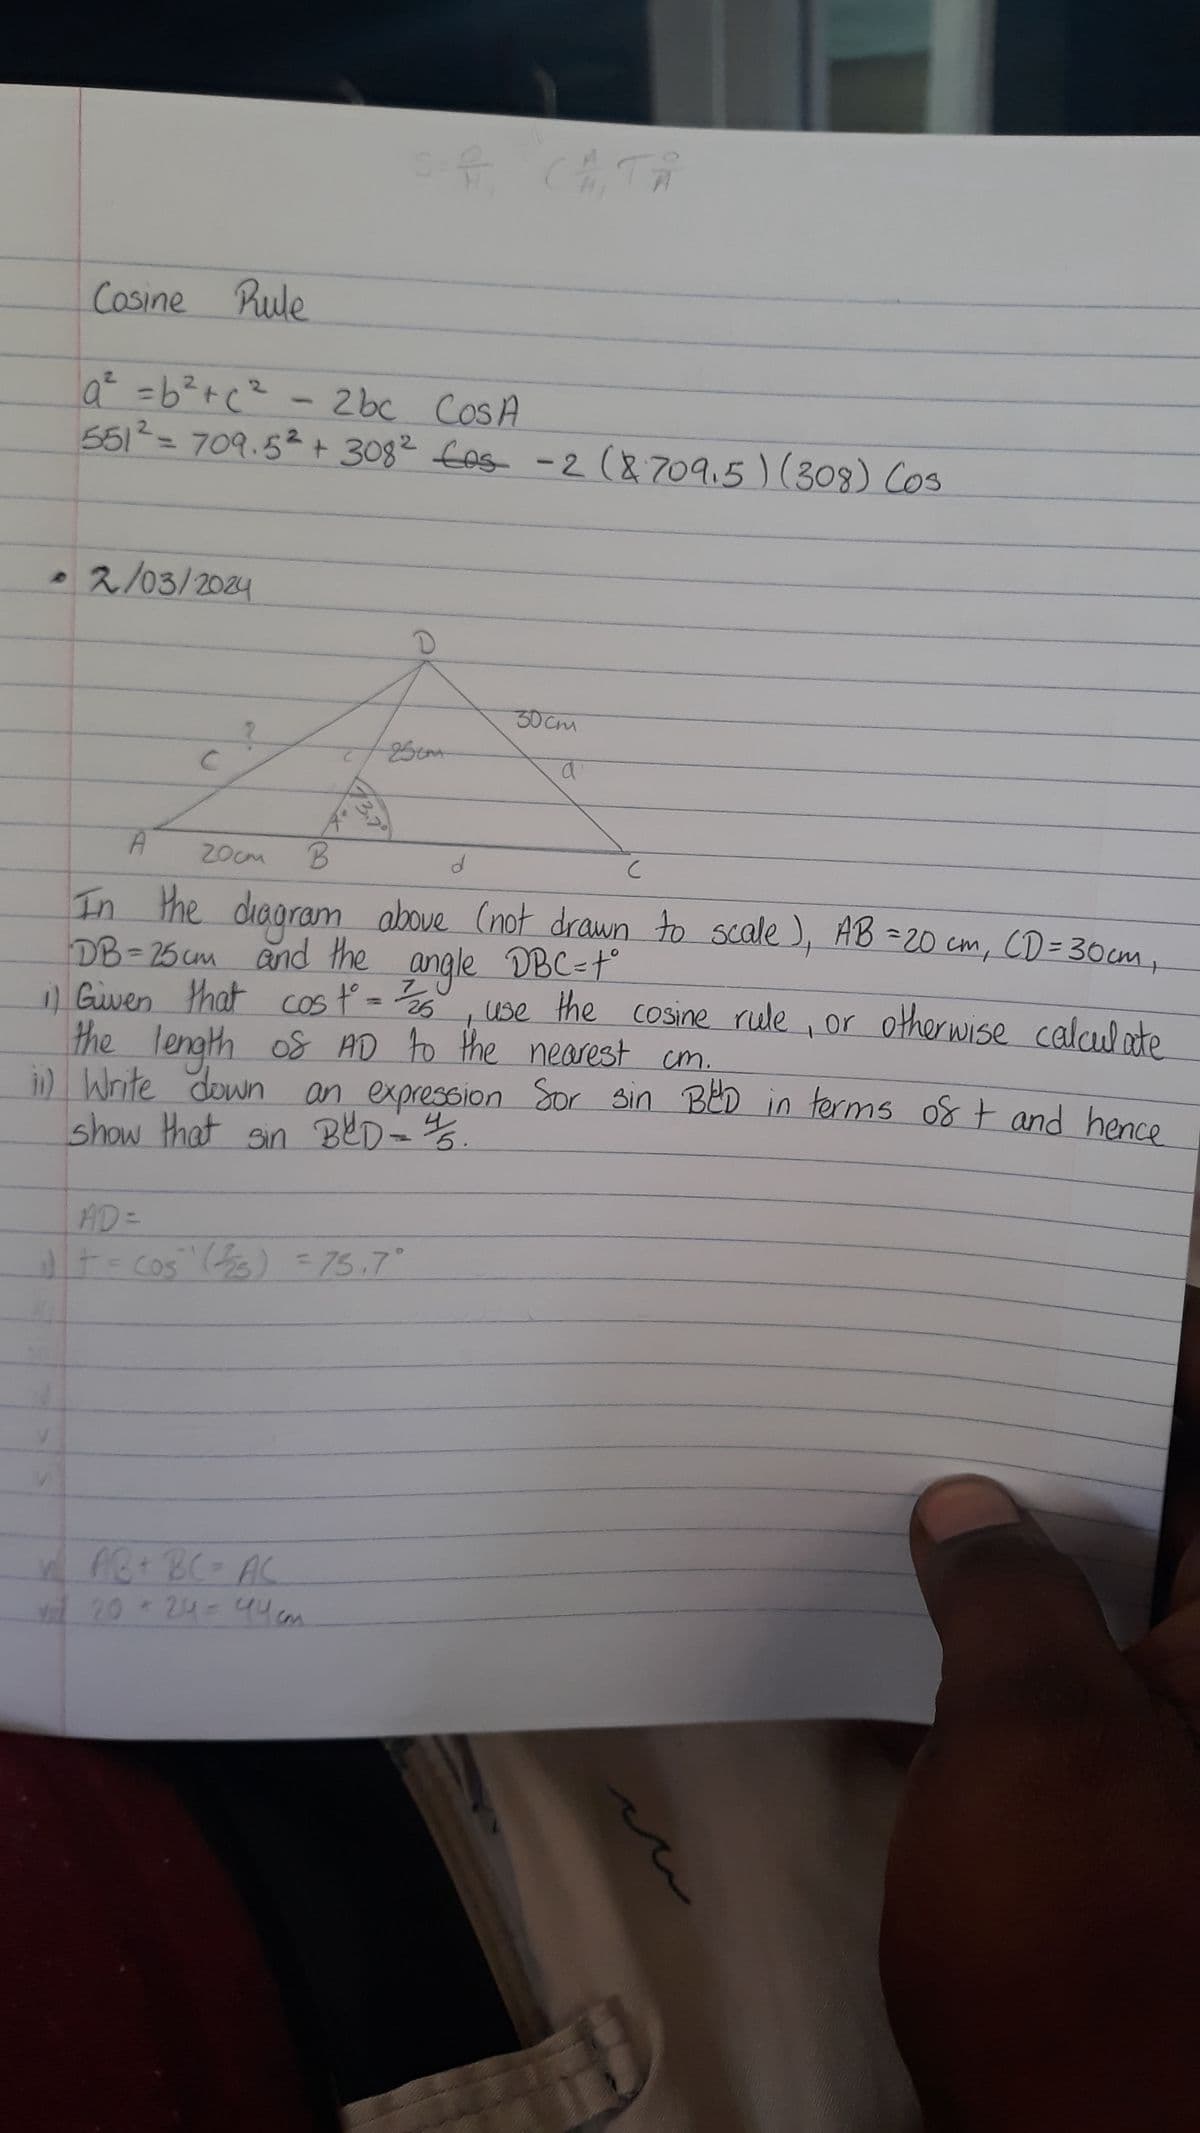 S O/H, C A/H, T O/A
Cosine Rule
a² = b² + c² - 2bc Cos A
551² = 709.5² + 308² Cos - 2 (& 709.5) (308) Cos
• 2/03/2024
D
30cm
?
C
c
25cm
a
A°
73.7°
A
20cm
B
d
C
In the diagram above (not drawn to scale), AB = 20 cm, CD = 30cm,
DB = 25 cm and the angle DBC = t°
i) Given that cos t° = 7/25, use the cosine rule, or otherwise calculate
the length of AD to the nearest cm.
ii) Write down an expression for sin BĈD in terms of t and hence
show that sin BĈD = 4/5.
AD =
i) t = cos⁻¹ (7/25) = 73.7°
AB + BC = AC
20 + 24 = 44 cm